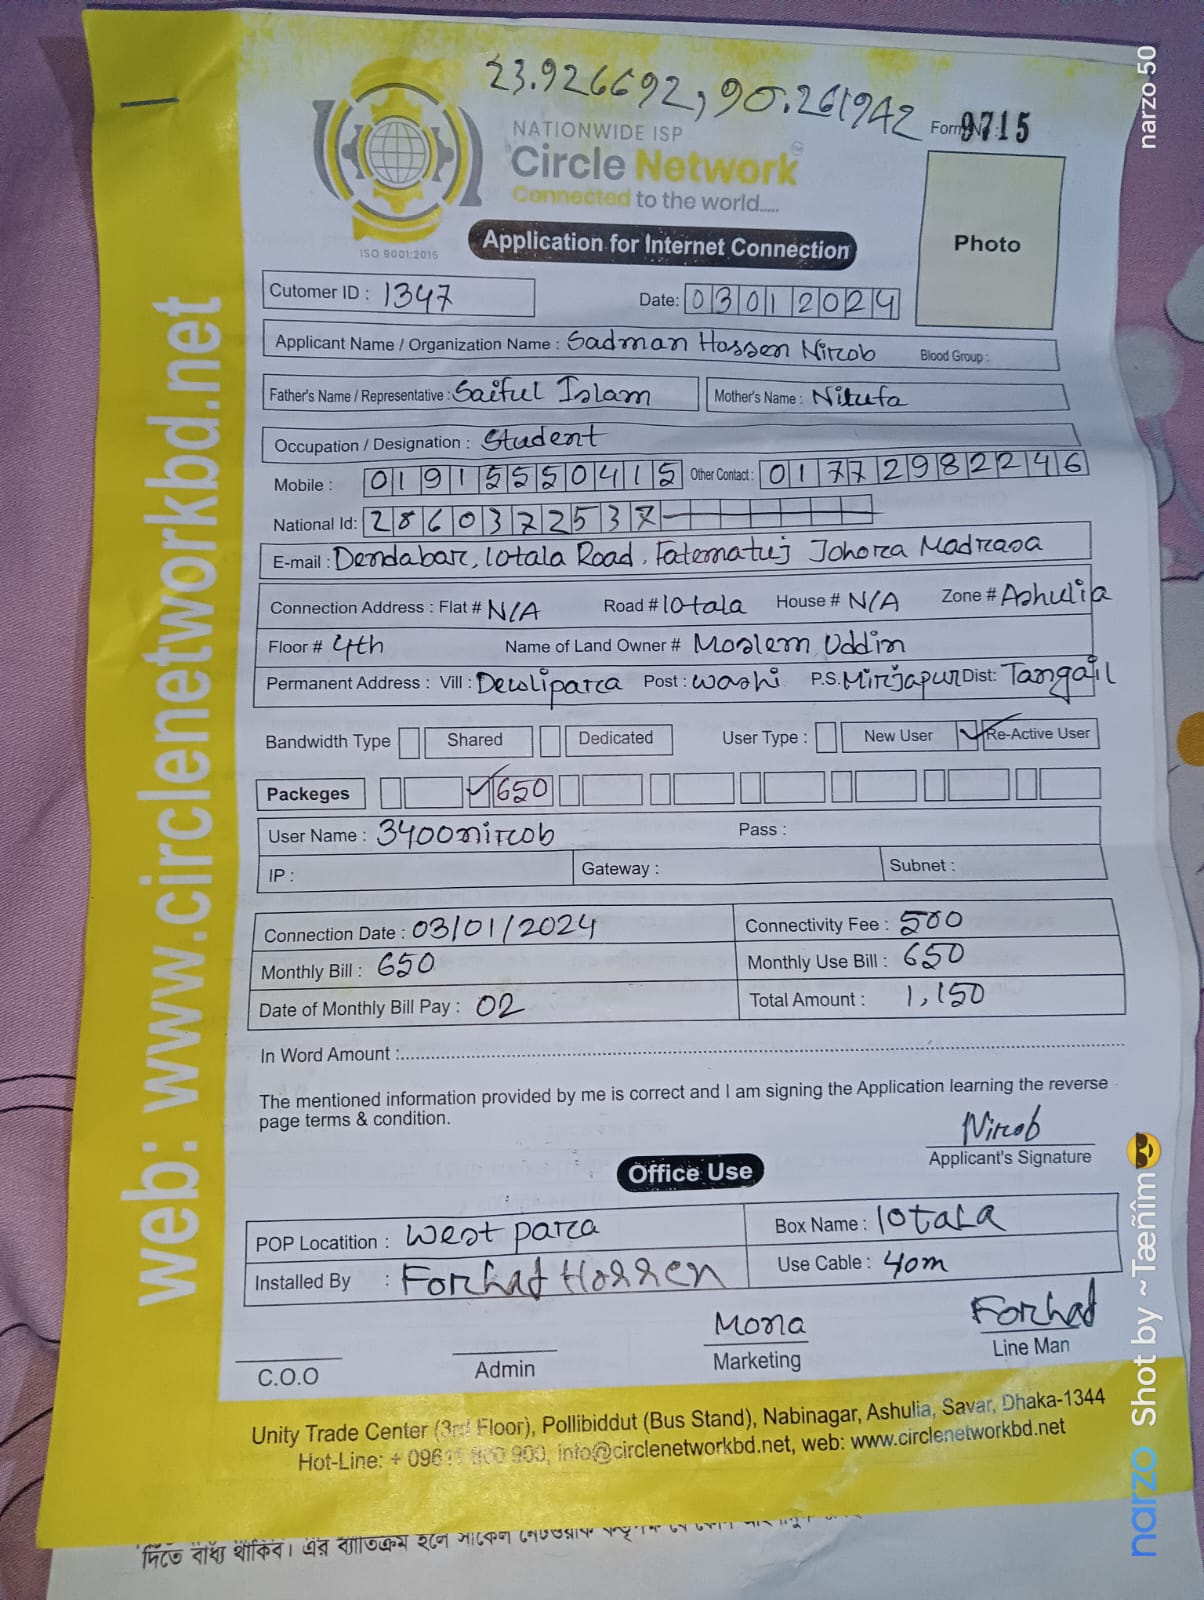 23.926692, 90.261942
Form 9715
NATIONWIDE ISP
Circle Network
Connected to the world.....
ISO 9001:2015
Application for Internet Connection
Photo
Cutomer ID : 1347
Date: 03012024
Applicant Name / Organization Name : Sadman Hossen Nirob Blood Group :
Father's Name / Representative : Saiful Islam Mother's Name : Nilufa
Occupation / Designation : Student
Mobile : 01915550415 Other Contact : 01772982246
National Id: 2860372537
E-mail : Dendabar, 10tala Road, Fatematuj Johora Madrasa
Connection Address : Flat # N/A Road # 10tala House # N/A Zone # Ashulia
Floor # 4th Name of Land Owner # Moslem Uddin
Permanent Address : Vill : Deolipara Post : Washi P.S. Mirjapur Dist: Tangail
Bandwidth Type Shared Dedicated User Type : New User Re-Active User
Packeges 650
User Name : 3400nirob Pass :
IP : Gateway : Subnet :
Connection Date : 03/01/2024 Connectivity Fee : 500
Monthly Bill : 650 Monthly Use Bill : 650
Date of Monthly Bill Pay : 02 Total Amount : 1,150
In Word Amount :
The mentioned information provided by me is correct and I am signing the Application learning the reverse
page terms & condition.
Nirob
Applicant's Signature
Office Use
POP Locatition : West para Box Name : 10tala
Installed By : Forhad Hossen Use Cable : 40m
Mona
Forhad
C.O.O Admin Marketing Line Man
Unity Trade Center (3rd Floor), Pollibiddut (Bus Stand), Nabinagar, Ashulia, Savar, Dhaka-1344
Hot-Line: + 09611 800 900, info@circlenetworkbd.net, web: www.circlenetworkbd.net
web: www.circlenetworkbd.net
দিতে বাধ্য থাকিব। এর ব্যাতিক্রম হলে সার্কেল নেটওয়ার্ক
narzo 50
narzo Shot by ~Tæñîm😎